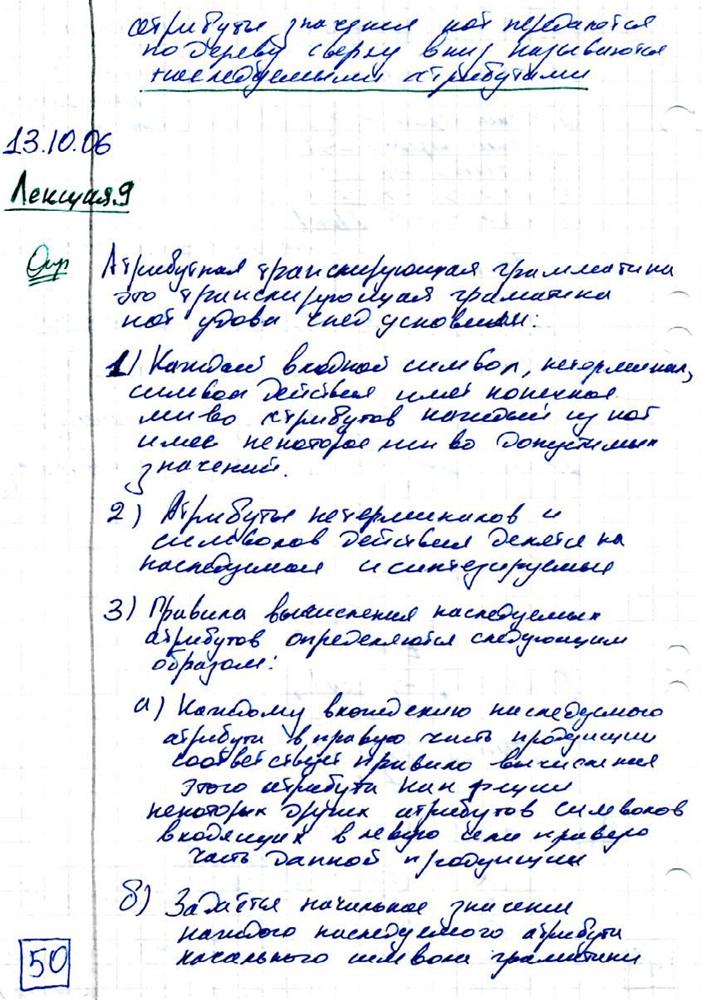 атрибуты значения кот передаются
по дереву сверху вниз называются
наследуемыми атрибутами
13.10.06
Лекция 9
Опр Атрибутная транслирующая грамматика
это транслирующая граматика
кот удовл след условиям:
1) Каждый входной символ, нетерминал,
символ действия имеет конечное
мн-во атрибутов каждый из кот
имеет некоторое мн-во допустимых
значений.
2) Атрибуты нетерминалов и
символов действия делятся на
наследуемые и синтезируемые
3) Правила вычисления наследуемых
атрибутов определяются следующим
образом:
а) Каждому вхождению наследуемого
атрибута в правую часть продукции
соответствует правило вычисления
этого атрибута как ф-ции
некоторых других атрибутов символов
входящих в левую или правую
часть данной продукции
б) Задаётся начальное значение
каждого наследуемого атрибута
начального символа граматики
50